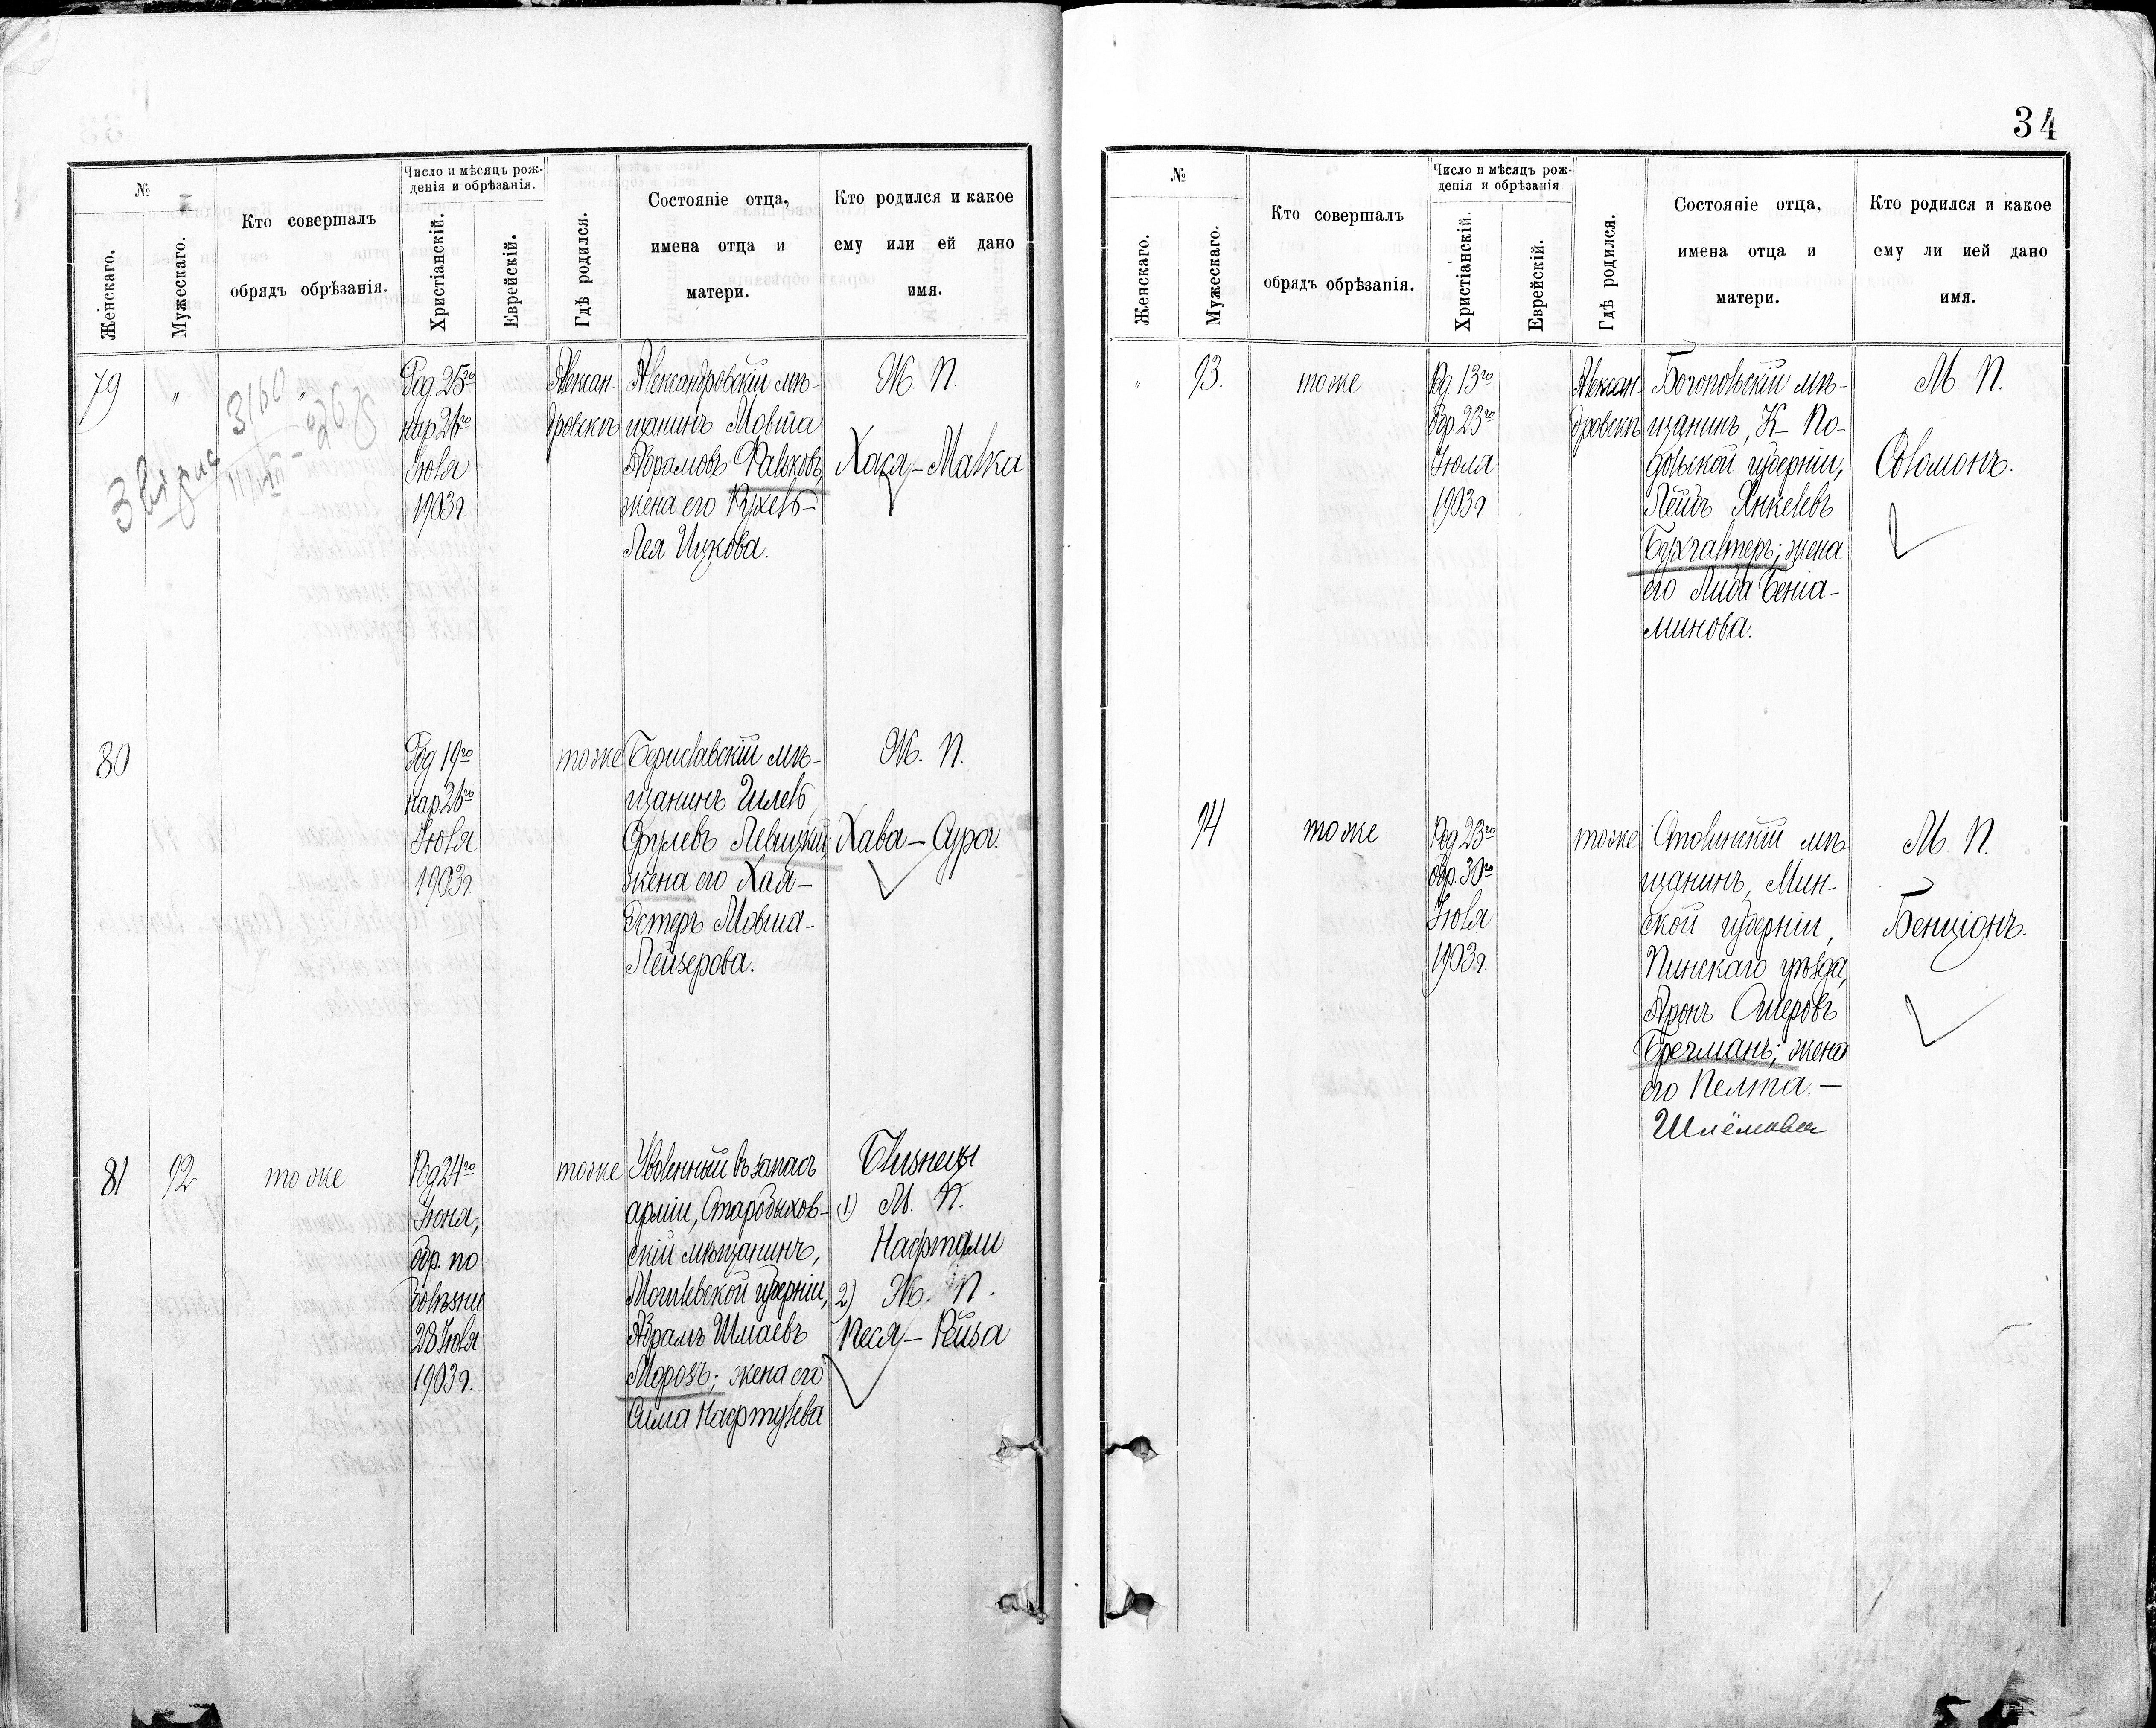 34
№
Женскаго.
Мужескаго.
Кто совершалъ
обрядъ обрѣзанія.
Число и мѣсяцъ рож-
денія и обрѣзанія.
Христіанскій.
Еврейскій.
Гдѣ родился.
Состояніе отца,
имена отца и
матери.
Кто родился и какое
ему или ей дано
имя.
79
"
"
Род. 25го
нар. 26го
Іюля
1903г.
Алексан-
дровскъ
Александровскій мѣ-
щанинъ Мовша
Абрамовъ Фальковъ,
жена его Рухель-
Лея Ицкова.
Ж. П.
Хася-Малка
3160
80
Род 19го
нар. 26го
Іюля
1903г.
тоже
Бериславскій мѣ-
щанинъ Шлемъ
Срулевъ Левицкій;
жена его Хая-
Эстеръ Мовша-
Лейзерова.
Ж. П.
Хава-Сура.
81
92
тоже
Род 24го
Іюня,
обр. по
болѣзни
28 Іюля
1903г.
тоже
Уволенный въ запасъ
арміи, Старобыхов-
скій мѣщанинъ,
Могилевской губерніи,
Абрамъ Шмаевъ
Морозъ; жена его
Сима Нафтулева
Близнецы
1) М. П.
Нафтали
2) Ж. П.
Песя-Рейза
№
Женскаго.
Мужескаго.
Кто совершалъ
обрядъ обрѣзанія.
Число и мѣсяцъ рож-
денія и обрѣзанія
Христіанскій.
Еврейскій.
Гдѣ родился.
Состояніе отца,
имена отца и
матери.
Кто родился и какое
ему ли ией дано
имя.
"
93.
тоже
Род. 13го
Обр 23го
Іюля
1903г.
Алексан-
дровскъ
Богопольскій мѣ-
щанинъ, К- По-
дольской губерніи,
Лейбъ Янкелевъ
Бухгалтеръ; жена
его Либа Беніа-
минова.
М. П.
Соломонъ.
94
тоже
Род 23го
Обр. 30го
Іюля
1903г.
тоже
Столинскій мѣ-
щанинъ, Мин-
ской губерніи,
Пинскаго уѣзда,
Аронъ Ошеровъ
Бречманъ; жена
его Пелта.-
Шлёмова
М. П.
Бенціонъ.